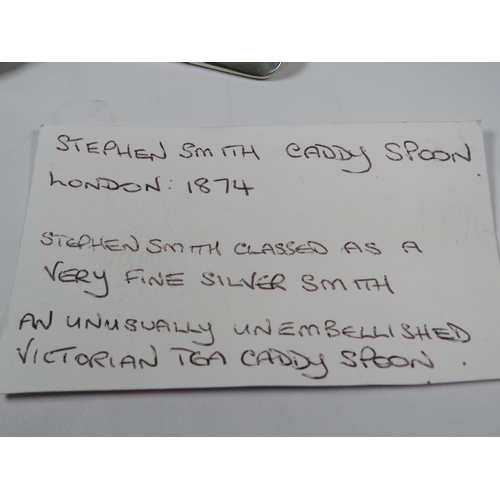 STEPHEN SMITH CADDY SPOON.
LONDON: 1874
STEPHEN SMITH CLASSED AS A
VERY FINE SILVER SMITH
AN UNUSUALLY UNEMBELLISHED
VICTORIAN TEA CADDY SPOON.